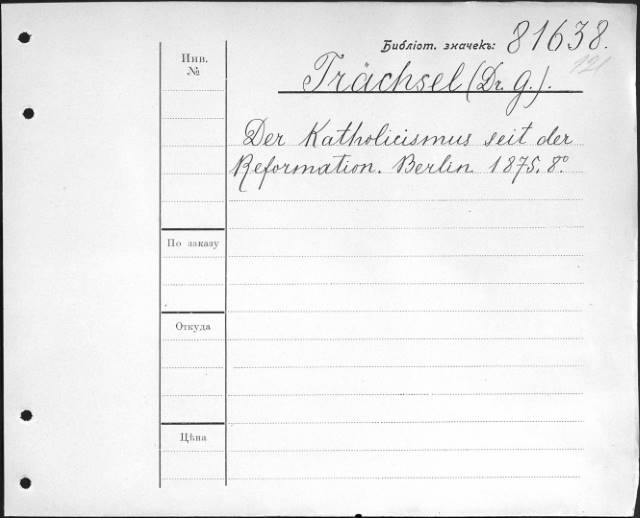 Библіот. значекъ: 81638.
121
Инв.
№
Trächsel (Dr. G.).
Der Katholicismus seit der
Reformation. Berlin. 1875. 8°.
По заказу
Откуда
Цѣна